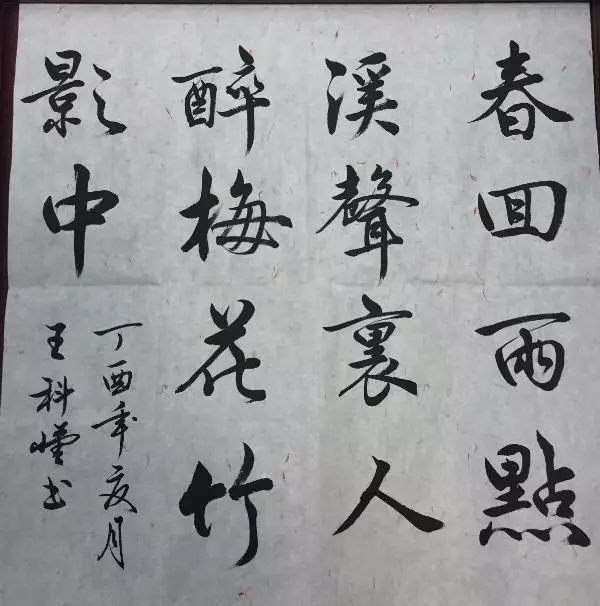 春回雨點
溪聲裏人
醉梅花竹
影中
丁酉年亥月
王科 書